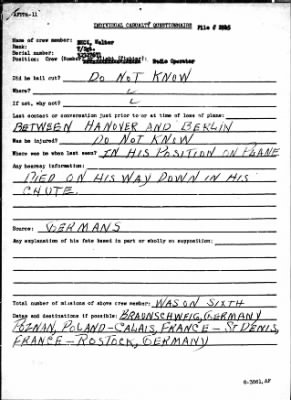 AFPPA-11
INDIVIDUAL CASUALTY QUESTIONNAIRE
File #
Name of crew member: Walter
Rank: T/Sgt.
Serial number:
Position: Crew (Bomber) Radio Operator
Did he bail out? DO NOT KNOW
Where?
If not, why not?
Last contact or conversation just prior to or at time of loss of plane:
BETWEEN HANOVER AND BERLIN
Was he injured? DO NOT KNOW
Where was he when last seen? IN HIS POSITION ON PLANE
Any hearsay information:
DIED ON HIS WAY DOWN IN HIS
CHUTE.
Source: GERMANS
Any explanation of his fate based in part or wholly on supposition:
Total number of missions of above crew member: WAS ON SIXTH
Dates and destinations if possible: BRAUNSCHWEIG, GERMANY
POZNAN, POLAND - CALAIS, FRANCE - ST DENIS,
FRANCE - ROSTOCK, GERMANY
6-3861, AF